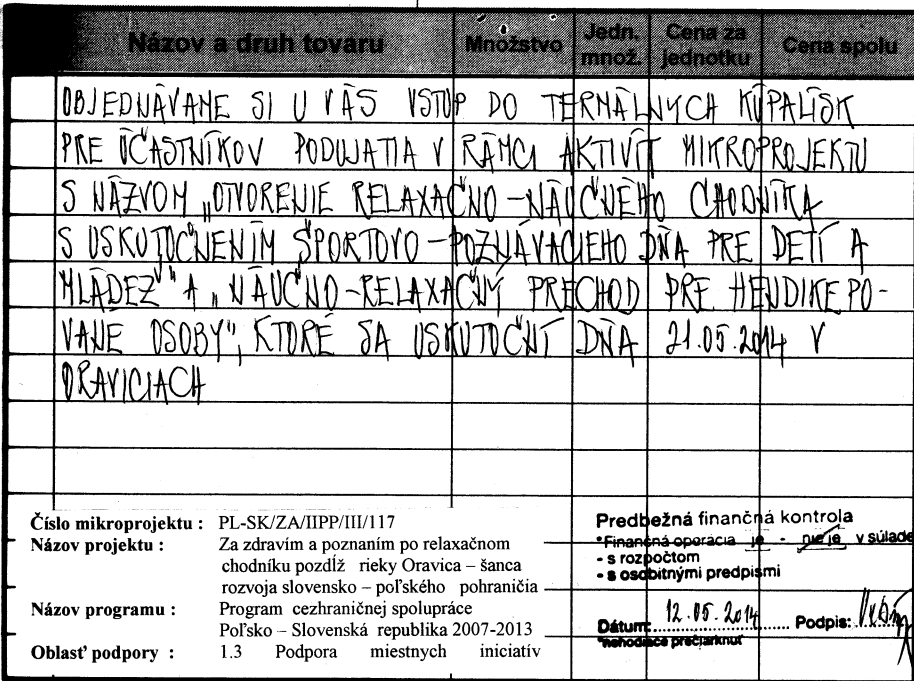 Názov a druh tovaru Množstvo Jedn. množ. Cena za jednotku Cena spolu
OBJEDNÁVAME SI U VÁS VSTUP DO TERMÁLNYCH KÚPALÍSK
PRE ÚČASTNÍKOV PODUJATIA V RÁMCI AKTIVÍT MIKROPROJEKTU
S NÁZVOM „OTVORENIE RELAXAČNO-NÁUČNÉHO CHODNÍKA
S USKUTOČNENÍM ŠPORTOVO-POZNÁVACIEHO DŇA PRE DETÍ A
MLÁDEŽ" A „NÁUČNO-RELAXAČNÝ PRECHOD PRE HENDIKEPO-
VANÉ OSOBY", KTORÉ SA USKUTOČNÍ DŇA 21.05.2014 V
ORAVICIACH
Číslo mikroprojektu : PL-SK/ZA/IIPP/III/117
Názov projektu : Za zdravím a poznaním po relaxačnom
chodníku pozdĺž rieky Oravica – šanca
rozvoja slovensko – poľského pohraničia
Názov programu : Program cezhraničnej spolupráce
Poľsko – Slovenská republika 2007-2013
Oblasť podpory : 1.3 Podpora miestnych iniciatív
Predbežná finančná kontrola
*Finančná operácia je - nie je v súlade
- s rozpočtom
- s osobitnými predpismi
Dátum: 12.05.2014 Podpis:
*nehodiace prečiarknuť